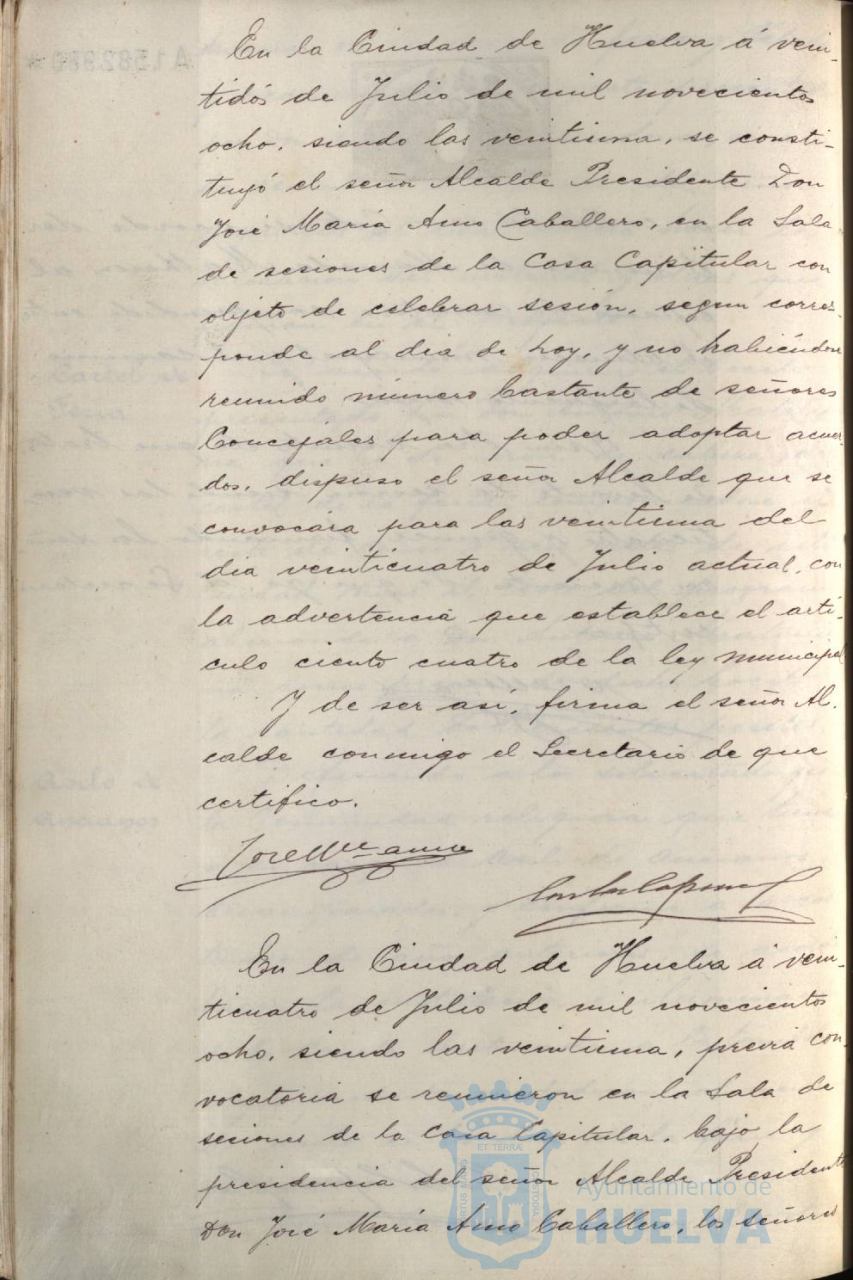 En la Ciudad de Huelva á vein-
tidós de Julio de mil novecientos
ocho, siendo las veintiuna, se consti-
tuyó el señor Alcalde Presidente Don
José María Amo Caballero, en la Sala
de sesiones de la Casa Capitular con
objeto de celebrar sesión, segun corres-
ponde al dia de hoy, y no habiéndose
reunido número bastante de señores
Concejales para poder adoptar acuer-
dos, dispuso el señor Alcalde que se
convocára para las veintiuna del
dia veinticuatro de Julio actual, con
la advertencia que establece el artí-
culo ciento cuatro de la ley municipal
Y de ser así, firma el señor Al-
calde conmigo el Secretario de que
certifico.
José Mª amo
En la Ciudad de Huelva á vein-
ticuatro de Julio de mil novecientos
ocho, siendo las veintiuna, previa con-
vocatoria se reunieron en la Sala de
seciones de la Casa Capitular, bajo la
presidencia del señor Alcalde Presidente
Don José María Amo Caballero, los señores
Ayuntamiento de
HUELVA